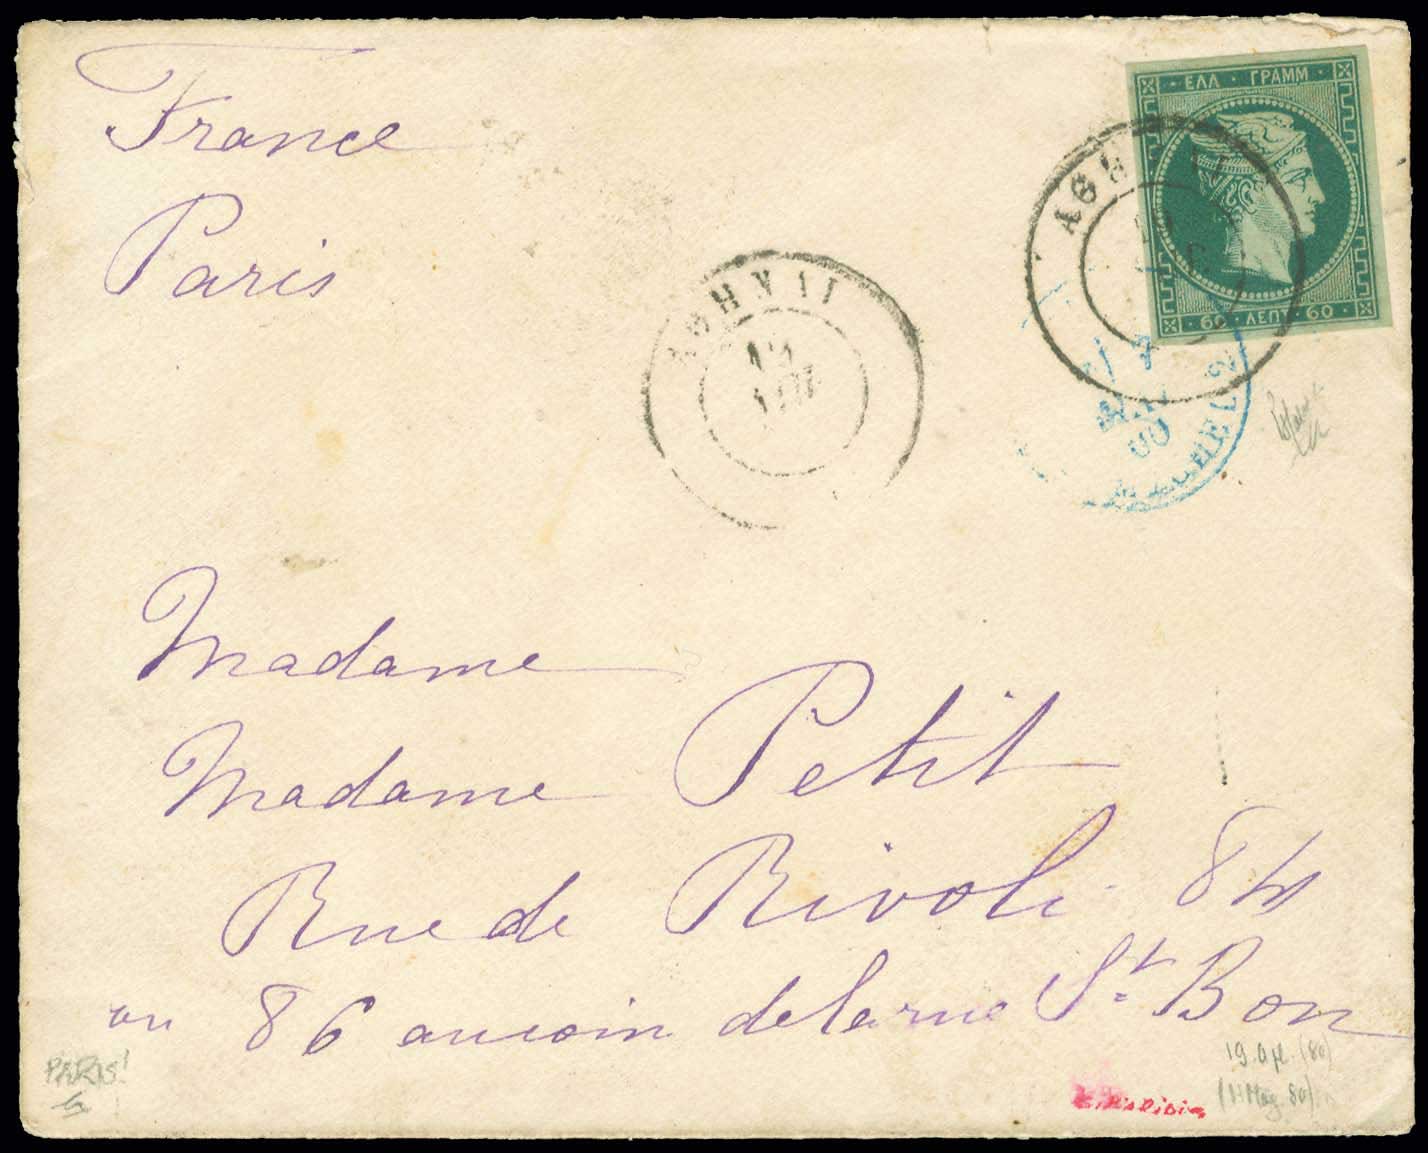 France
Paris
ΕΛΛ · ΓΡΑΜΜ
60 ΛΕΠΤ 60
ΑΘΗΝΑΙ
ΑΘΗ
Madame
Madame Petit
Rue de Rivoli 84
ou 86 au coin de la rue St. Bon
PARIS!
19. Apl. (80)
(1 May. 80)